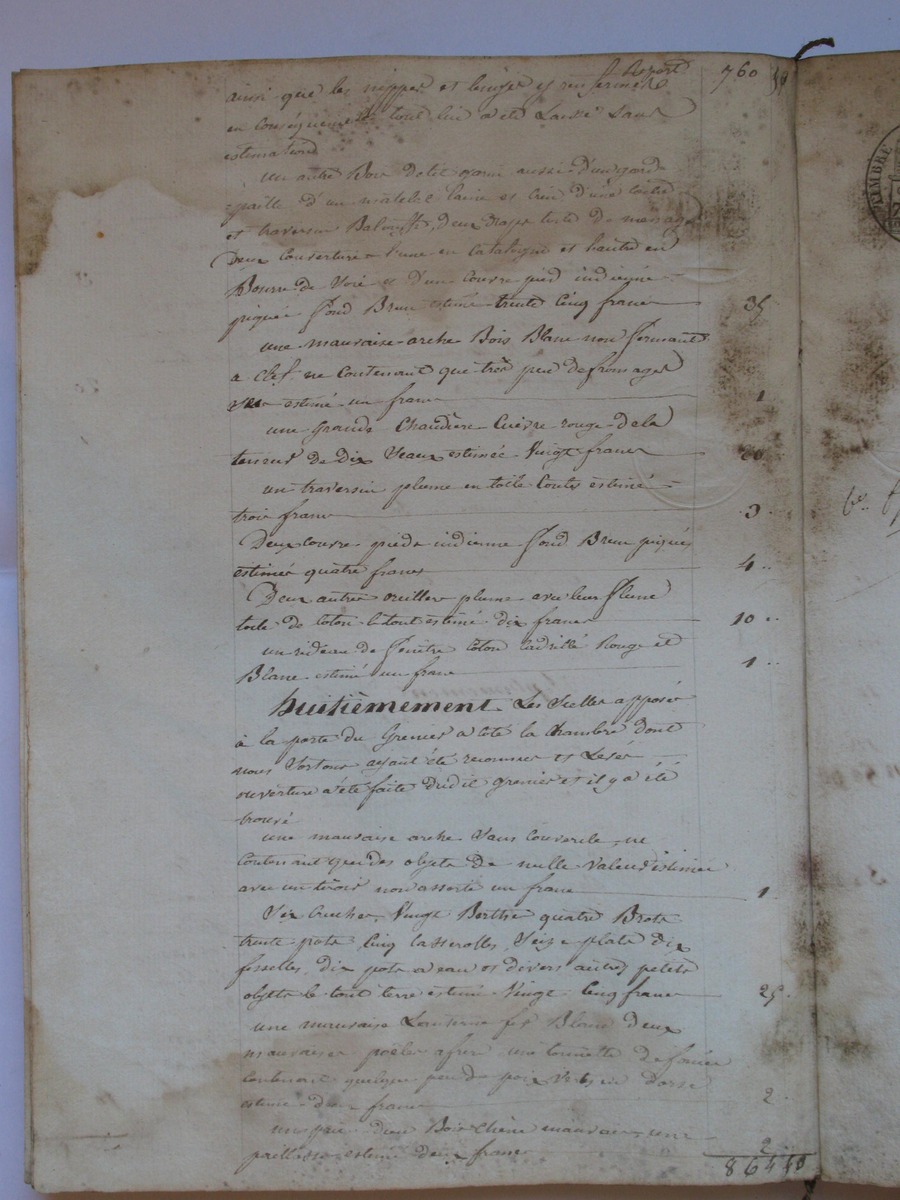 Report 760 50
ainsi que les nippes et linges y renfermés
en conséquence le tout lui a été Laissé Sans
estimation
un autre Bois de lit garni aussi d'un gard
paille d'un matelat laine et crin d'une
et traversin Balouffe, deux draps toile de menage
Deux couvertures l'une en Catalogne et l'autre en
Bourre de Soie et d'un couvre pied indienne
piquée fond Brun estimé trente Cinq francs 35
une mauvaise arche Bois Blanc non fermant
a clef ne Contenant que très peu de fromages
estimé un franc 1
une Grande Chaudière Cuivre rouge de la
teneur de Dix Seaux estimée Vingt francs 20
un traversin plume en toile Coutis estimé
trois francs 3
Deux couvre-pieds indienne fond Brun piqués
estimés quatre francs 4
Deux autres oreillers plume avec leur
toile de Coton le tout estimé dix francs 10
un rideau de fenêtre Coton Cadrillé Rouge et
Blanc estimé un franc 1
huitièmement Les Scellés apposés
à la porte du Grenier a côté la Chambre dont
nous Sortons ayant été reconnus et Levés
ouverture a été faite dudit grenier et il y a été
trouvé
une mauvaise arche Sans Couvercle, ne
Contenant que des objets de nulle valeur estimée
avec un tiroir non assorti un franc 1
Six Cruches, Vingt Berthes quatre Brots
trente pots, Cinq Casserolles, Seize plats dix
fesselles, dix pots a eau et divers autres petits
objets le tout terre estimé Vingt Cinq francs 25
une mauvaise Lanterne fer Blanc deux
mauvaises poëles a frire une
contenant quelque peu de pois Verts
estimé deux francs 2
Bois Chêne mauvais, une
paillasse estimé deux francs 2
864 50
TIMBRE